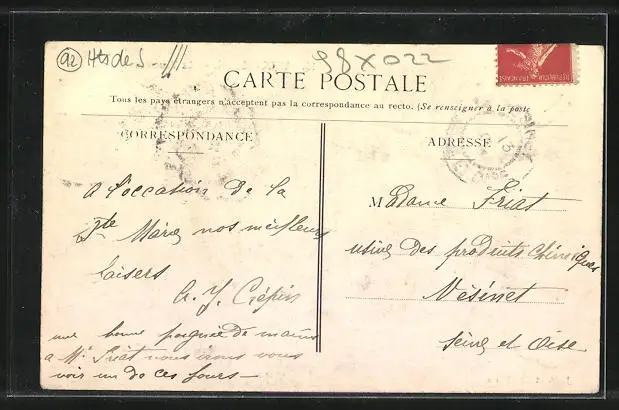 92 Hts de S
98X022
CARTE POSTALE
Tous les pays étrangers n'acceptent pas la correspondance au recto. (Se renseigner à la poste
CORRESPONDANCE
a l'occation de la
Ste Marie nos meilleurs
baisers
G. Y. Crépin
une bonne poignée de mains
a Mr Friat nous irons vous
voir un de ces jours
ADRESSE
Madame Friat
usine des produits chimiques
Vésinet
Seine et Oise
REPUBLIQUE FRANÇAISE